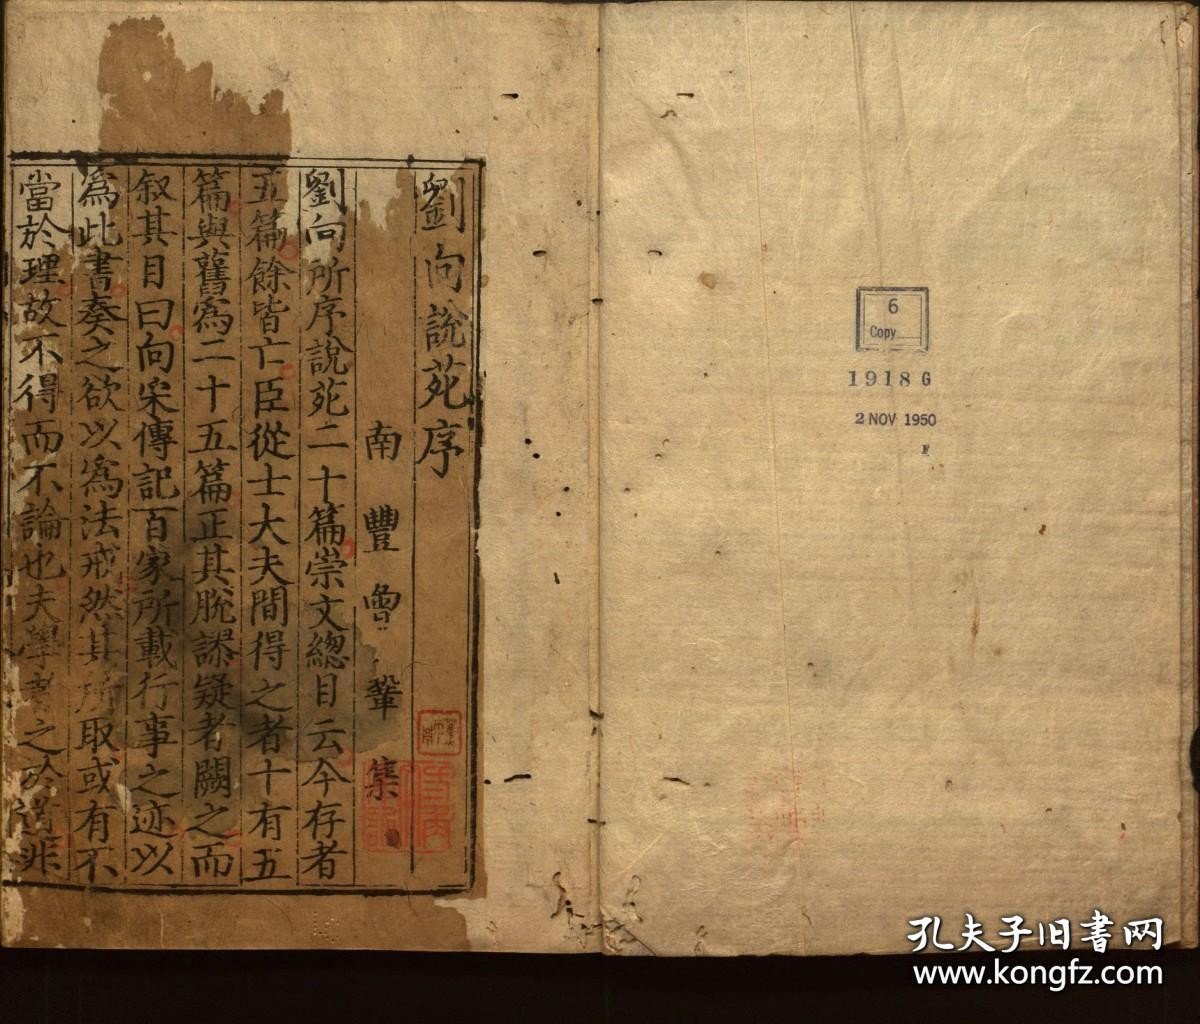 劉向說苑序
南豐曾鞏集
劉向所序說苑二十篇崇文緫目云今存者
五篇餘皆亡臣從士大夫間得之者十有五
篇與舊爲二十五篇正其脫謬疑者闕之而
叙其目曰向采傳記百家所載行事之迹以
爲此書奏之欲以爲法戒然其所取或有不
當於理故不得而不論也夫學者之於道非
6
Copy
1918 G
2 NOV 1950
孔夫子旧書网
www.kongfz.com